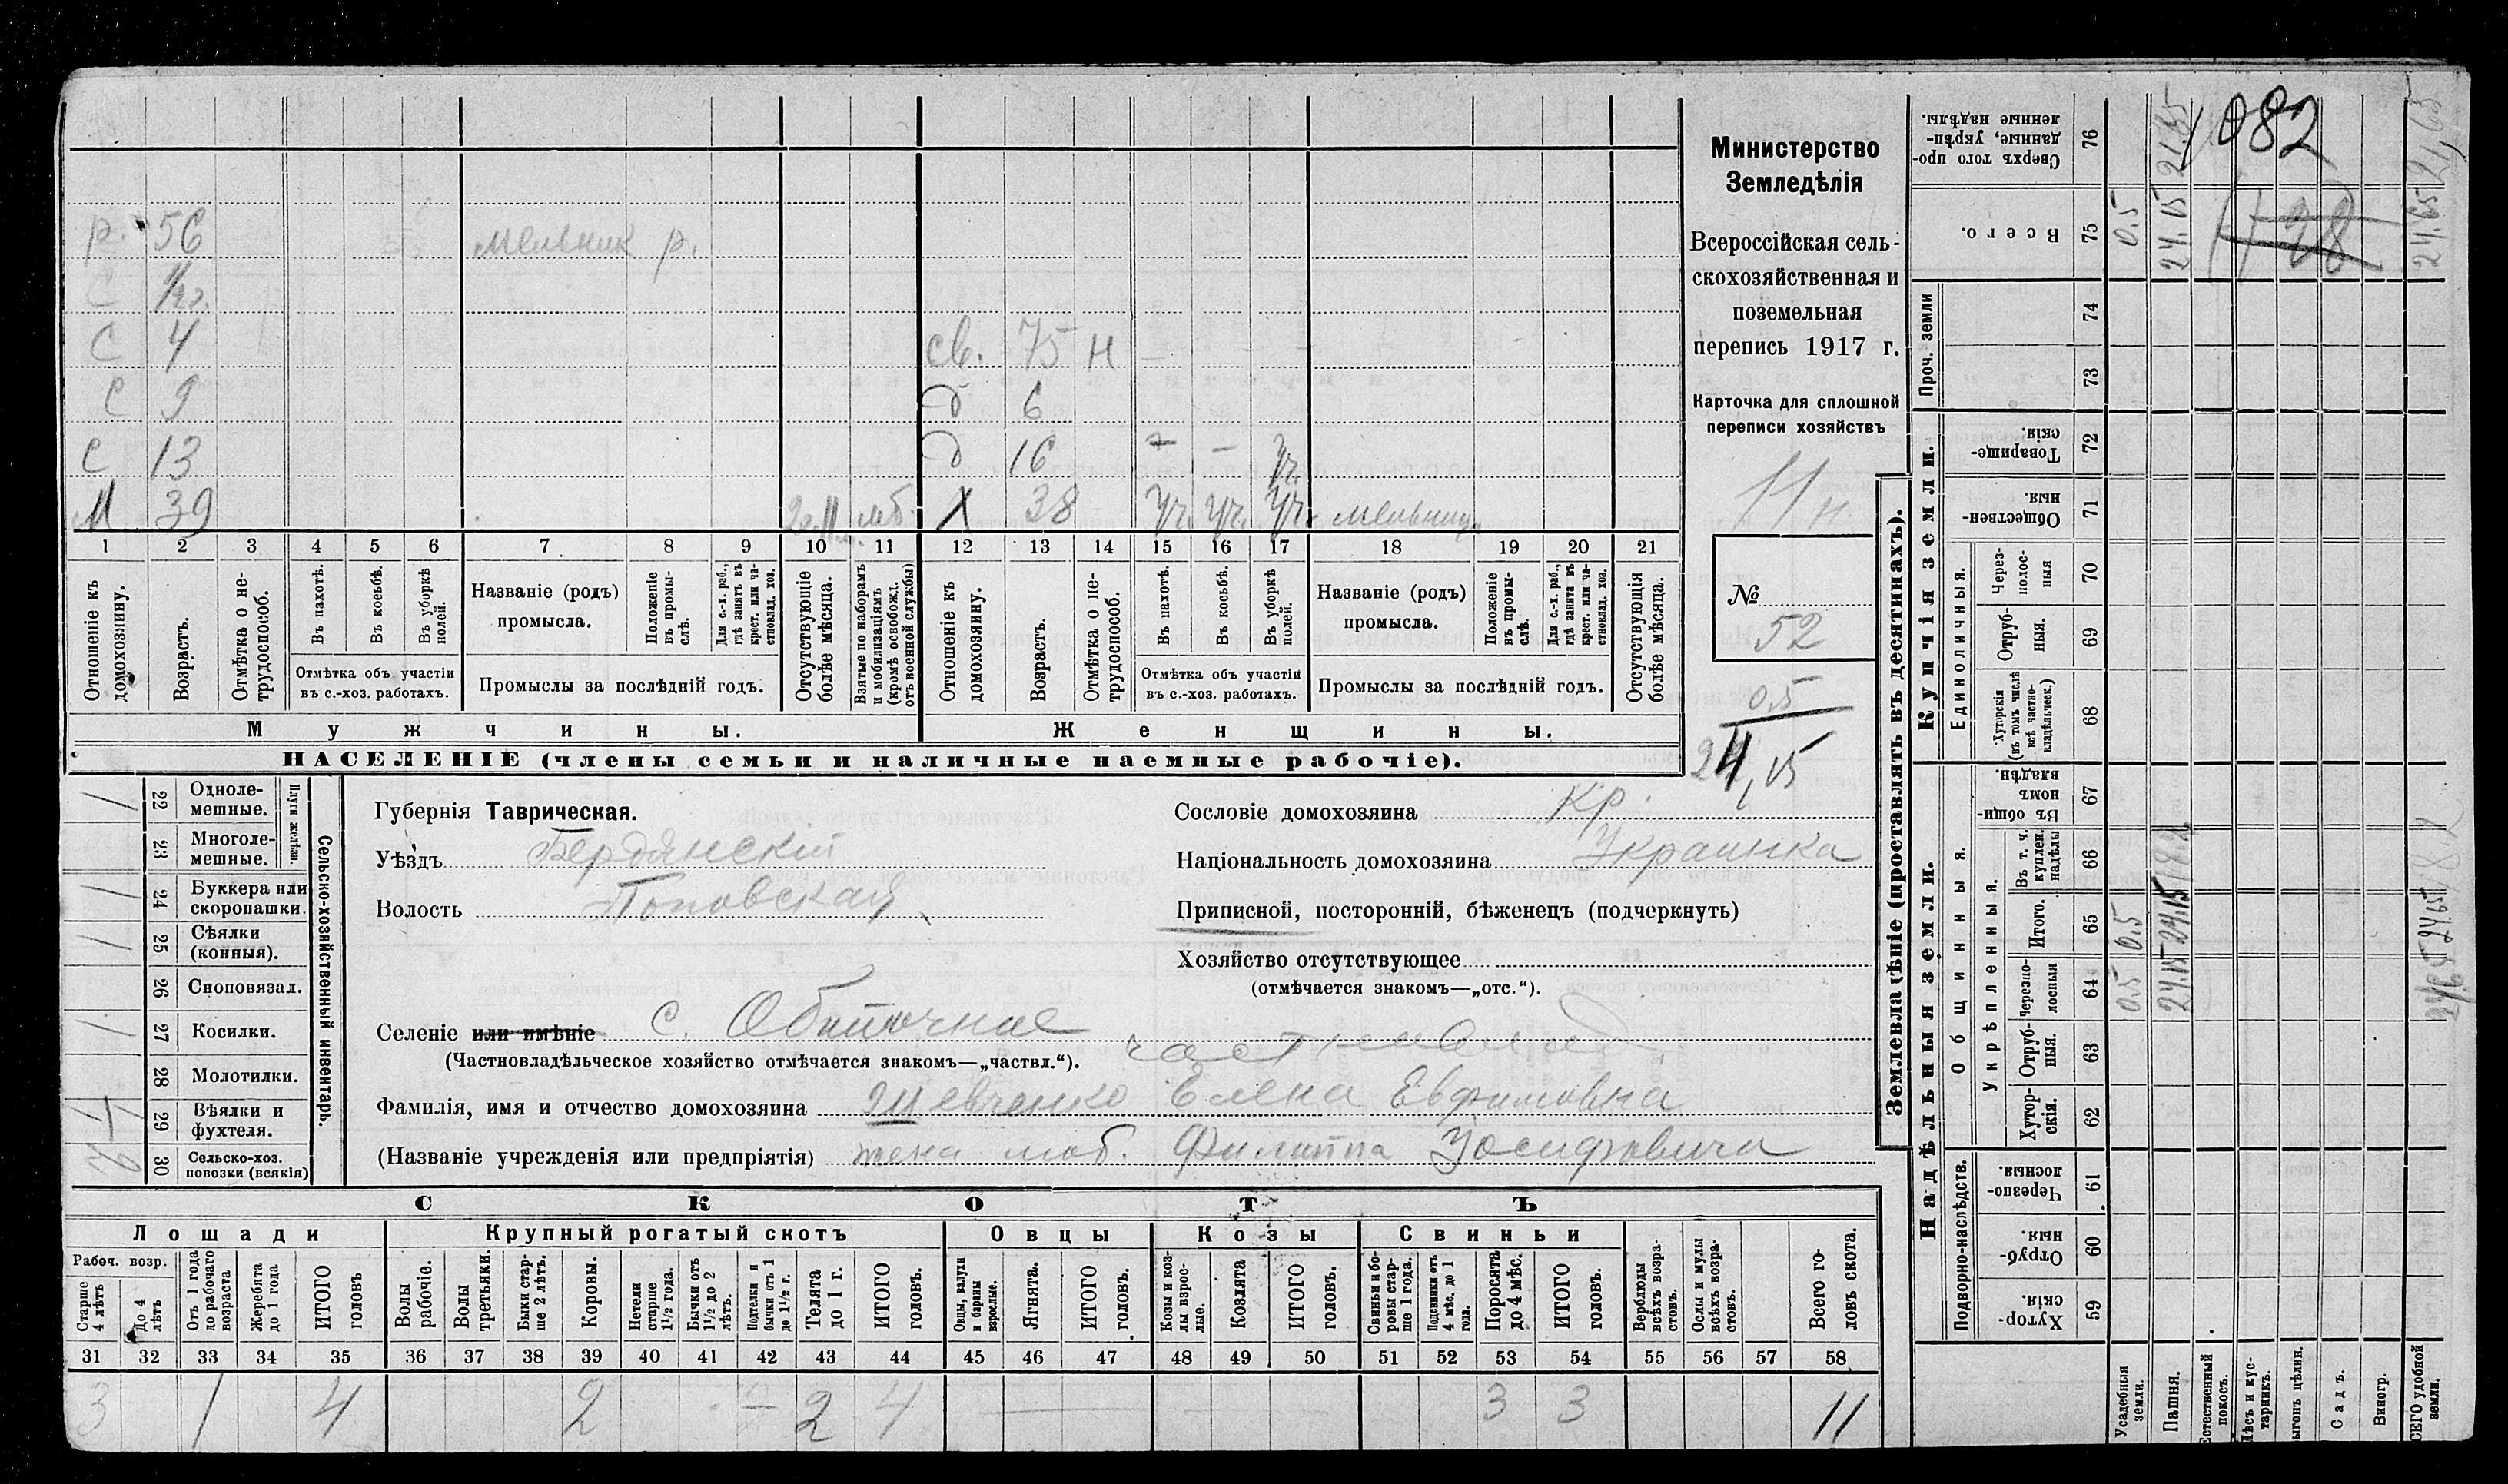 р. 56 мельник р.
С 1/2 г.
С 4 св. 75 Н
С 9 д 6
С 13 д 16 – – Уч.
М 39 мб. Х 38 Уч. Уч. Уч. мельница
1 2 3 4 5 6 7 8 9 10 11 12 13 14 15 16 17 18 19 20 21
Отношеніе къ домохозяину.
Возрастъ.
Отмѣтка о нетрудоспособ.
Въ пахотѣ.
Въ косьбѣ.
Въ уборкѣ полей.
Отмѣтка объ участіи
въ с.-хоз. работахъ.
Названіе (родъ)
промысла.
Положеніе въ промыслѣ.
Для с.-х. раб., гдѣ занятъ въ крест. или частновлад. хоз.
Промыслы за послѣдній годъ.
Отсутствующіе болѣе мѣсяца.
Взятые по наборамъ и мобилизаціямъ (кромѣ освобожд. отъ военной службы)
Отношеніе къ домохозяину.
Возрастъ.
Отмѣтка о нетрудоспособ.
Въ пахотѣ.
Въ косьбѣ.
Въ уборкѣ полей.
Отмѣтка объ участіи
въ с.-хоз. работахъ.
Названіе (родъ)
промысла.
Положеніе въ промыслѣ.
Для с.-х. раб., гдѣ занята въ крест. или частновлад. хоз.
Промыслы за послѣдній годъ.
Отсутствующія болѣе мѣсяца.
Мужчины. Женщины.
НАСЕЛЕНІЕ (члены семьи и наличные наемные рабочіе).
Министерство
Земледѣлія
Всероссійская сель-
скохозяйственная и
поземельная
перепись 1917 г.
Карточка для сплошной
переписи хозяйствъ
11 н.
№
52
0.5
24,15
Сельско-хозяйственный инвентарь.
Плуги желѣзн.
22 Одноле-
мешные. 1
23 Многоле-
мешные.
24 Буккера или
скоропашки. 1
25 Сѣялки
(конныя). 1
26 Сноповязал.
27 Косилки. 1
28 Молотилки.
29 Вѣялки и
фухтеля. 1
30 Сельско-хоз.
повозки (всякія)
Губернія Таврическая.
Уѣздъ Бердянскій
Волость Поповская
Селеніе или имѣніе с. Обиточное
(Частновладѣльческое хозяйство отмѣчается знакомъ—„частвл.“).
Фамилія, имя и отчество домохозяина Шевченко Елена Евфимовна
(Названіе учрежденія или предпріятія) жена моб. Филиппа Іосифовича
Сословіе домохозяина кр.
Національность домохозяина Украинка
Приписной, посторонній, бѣженецъ (подчеркнуть)
Хозяйство отсутствующее
(отмѣчается знакомъ—„отс.“).
СКОТЪ
Лошади Крупный рогатый скотъ Овцы Козы Свиньи
Рабоч. возр.
Старше 4 лѣтъ
До 4 лѣтъ
Отъ 1 года до рабочаго возраста
Жеребята до 1 года
ИТОГО головъ
Волы рабочіе.
Волы третьяки.
Быки старше 2 лѣтъ.
Коровы.
Нетели старше 1½ года.
Бычки отъ 1½ до 2 лѣтъ.
Подтелки и бычки отъ 1 до 1½ г.
Телята до 1 г.
ИТОГО головъ.
Овцы, валухи и бараны взрослые.
Ягнята.
ИТОГО головъ.
Козы и козлы взрослые.
Козлята
ИТОГО головъ.
Свиньи и боровы старше 1 года.
Подсвинки отъ 4 мѣс. до 1 года.
Поросята до 4 мѣс.
ИТОГО головъ.
Верблюды всѣхъ возрастовъ.
Ослы и мулы всѣхъ возрастовъ.
Всего головъ скота.
31 32 33 34 35 36 37 38 39 40 41 42 43 44 45 46 47 48 49 50 51 52 53 54 55 56 57 58
3 1 4 2 2 4 3 3 11
Землевладѣніе (проставлять въ десятинахъ).
Надѣльныя земли. Купчія земли. Проч. земли
Подворно-наслѣдств. Общинныя. Укрѣпленныя. Единоличныя.
Хуторскія. 59
Отрубныя. 60
Черезполосныя. 61
Хуторскія. 62
Отрубныя. 63
Черезполосныя 64 0.5 24.15 24.65
Итого. 65 0.5 24.15 24.65
Въ т. ч. куплен. надѣлы 66
Въ общинномъ владѣн. 67
Хуторскія (въ томъ числѣ всѣ частновладѣльческ.) 68
Отрубныя. 69
Черезполосныя 70
Общественныя. 71
Товарищескія. 72
73
74
Всего. 75 0.5 24.15 24.65
Сверхъ того проданные, укрѣпленные надѣлы. 76 21.65
1082
1128
Усадебныя земли.
Пашня.
Естественный покосъ.
Лѣсъ и кустарникъ.
Выгонъ цѣлин.
Садъ.
Виногр.
ВСЕГО удобной земли.